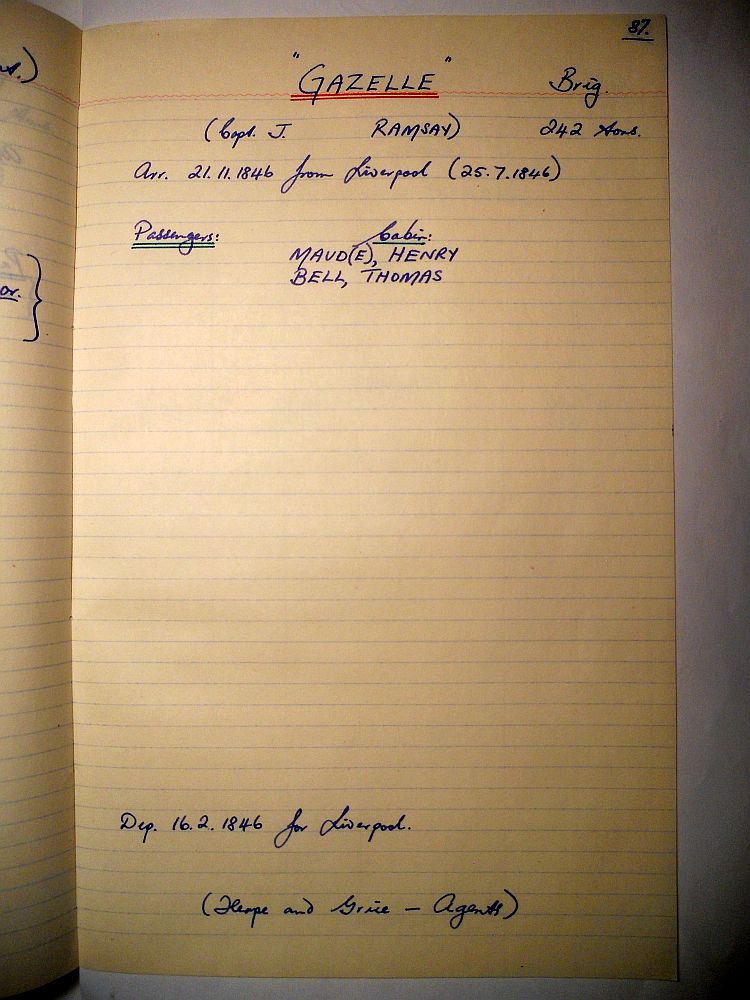 87.
"GAZELLE" Brig.
(Capt. J. RAMSAY) 242 tons.
Arr. 21.11.1846 from Liverpool (25.7.1846)
Passengers: Cabin:
MAUD(E), HENRY
BELL, THOMAS
or.
Dep. 16.2.1846 for Liverpool.
( and Grice — Agents)